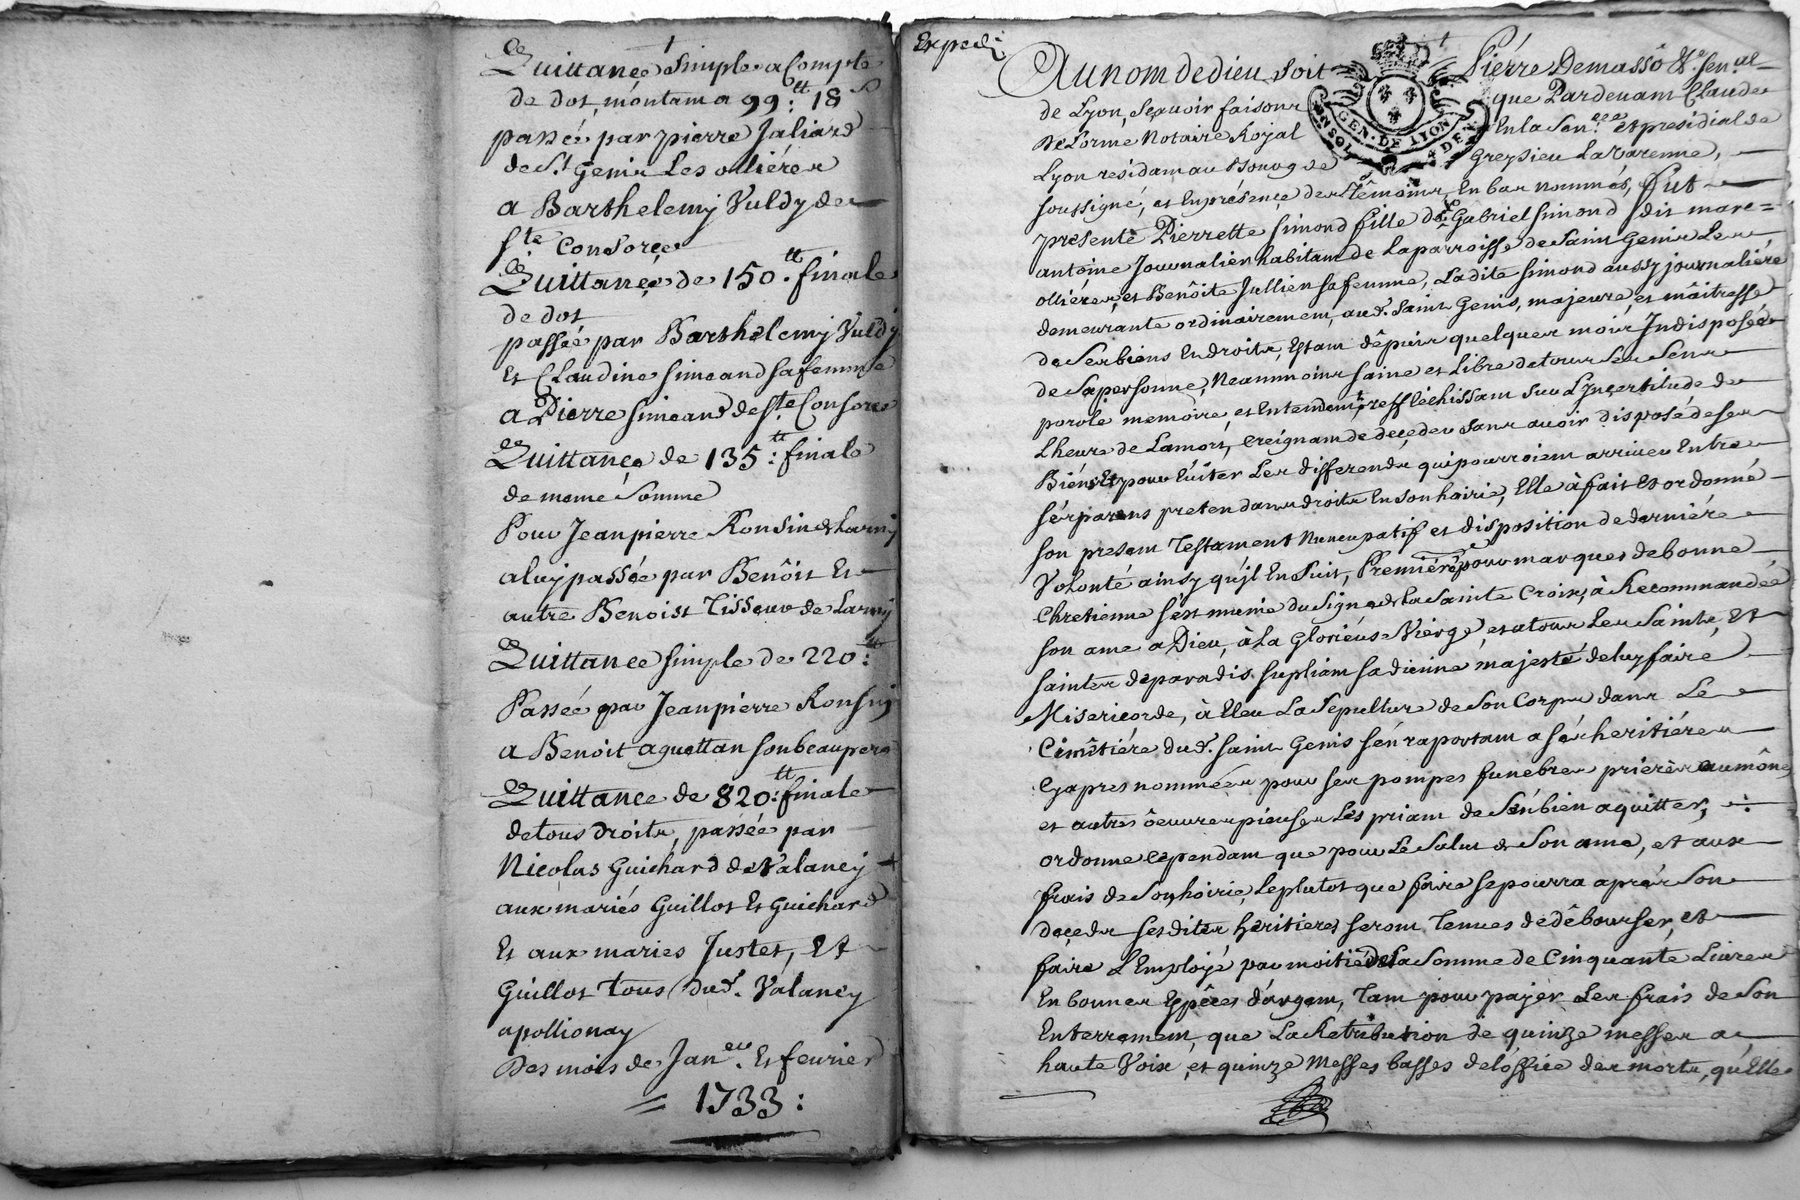 Quittance simple a Compte
de dot, montant a 99:tt 18 s
passé par pierre Jaliard
de St Genis Les ollières
a Barthelemy Vuldy de
ste Consorce
Quittance de 150:tt finale
de dot
passée par Barthelemy Vuldy
Et Claudine simeand sa femme
a Pierre simeand de ste Consorce
Quittance de 135:tt finale
de meme somme
Pour Jean pierre Ronsin
a luy passée par Benôit Et
autre Benoist Tisseur de
Quittance simple de 220:tt
Passée par Jean pierre Ronsin
a Benoit aguettan son beaupere
Quittance de 820:tt finale
de tous droits, passée par
Nicolas Guichard de Valancy
aux mariés Guillot Et Guichard
Et aux mariés Justet, Et
Guillot tous dud. Valancy
apollionay
Des mois de Janer. Et fevrier
= 1733:
Expedié
Au nom de dieu soit Pierre Demasso
de Lyon, sçavoir faisons que Pardevant Claude
DeLorme Notaire Royal En la Sen.ée et presidial de
Lyon residant au Bourg de Greysieu La Varenne,
soussigné, et En présence des Témoins En bas nommés, fut
présente Pierrette simond fille de Gabriel simond dit marc=
antoine Journalier habitant de La parroisse de Saint Genis Les
ollières, et Benôite Jullien sa femme, Ladite simond aussy journalière
demeurante ordinairement, aud. Saint Genis, majeure, et maîtresse
de Ses biens En droits, Estant dépuis quelques mois Indisposée
de Sa personne, Neanmoins saine et Libre de tous Ses Sens
parole memoire, et Entendemt refflêchissant sur L'Inçertitude de
Lheure de La mort, Creignant de deçeder sans avoir disposé de ses
Biens Et pour Eviter Les differends qui pourroient arriver Entre
sés parens pretendans droits En son hoirie, Elle à fait Et ordonné
son present Testament Nuncupatif et disposition de derniére
Volonté ainsy qu'jl En Suit, Premiéremt pour marques de bonne
Chretienne s'est munie du Signe de La Sainte Croix, à Recommandée
son ame a Dieu, à La Glorieuse Viérge, et a tous Les Saints, Et
saintes de paradis, supliant sa divine majesté de luy faire
Misericorde, à Eleu La Sepulture de Son Corps dans Le
Cimêtiére dud. Saint Genis s'én raportant a sés heritiéres
Cy apres nommées pour ses pompes funebres priéres aumônes
et autres oeuvres pieuses Les priant de S'én bien aquitter,
ordonne cependant que pour Le Salut de Son ame, et aux
frais de Son hoirie, Le plutot que faire se pourra aprés Son
deçeds sesdites héritieres seront Tenues de débourser, et
faire L'Employé par moitié de La Somme de Cinquante Livres
En bonnes Espêces d'argent, Tant pour payér Les frais de Son
Enterrement, que La Retribution de quinze messes a
haute Voix, et quinze Messes basses de l'office des morts, qu'Elle